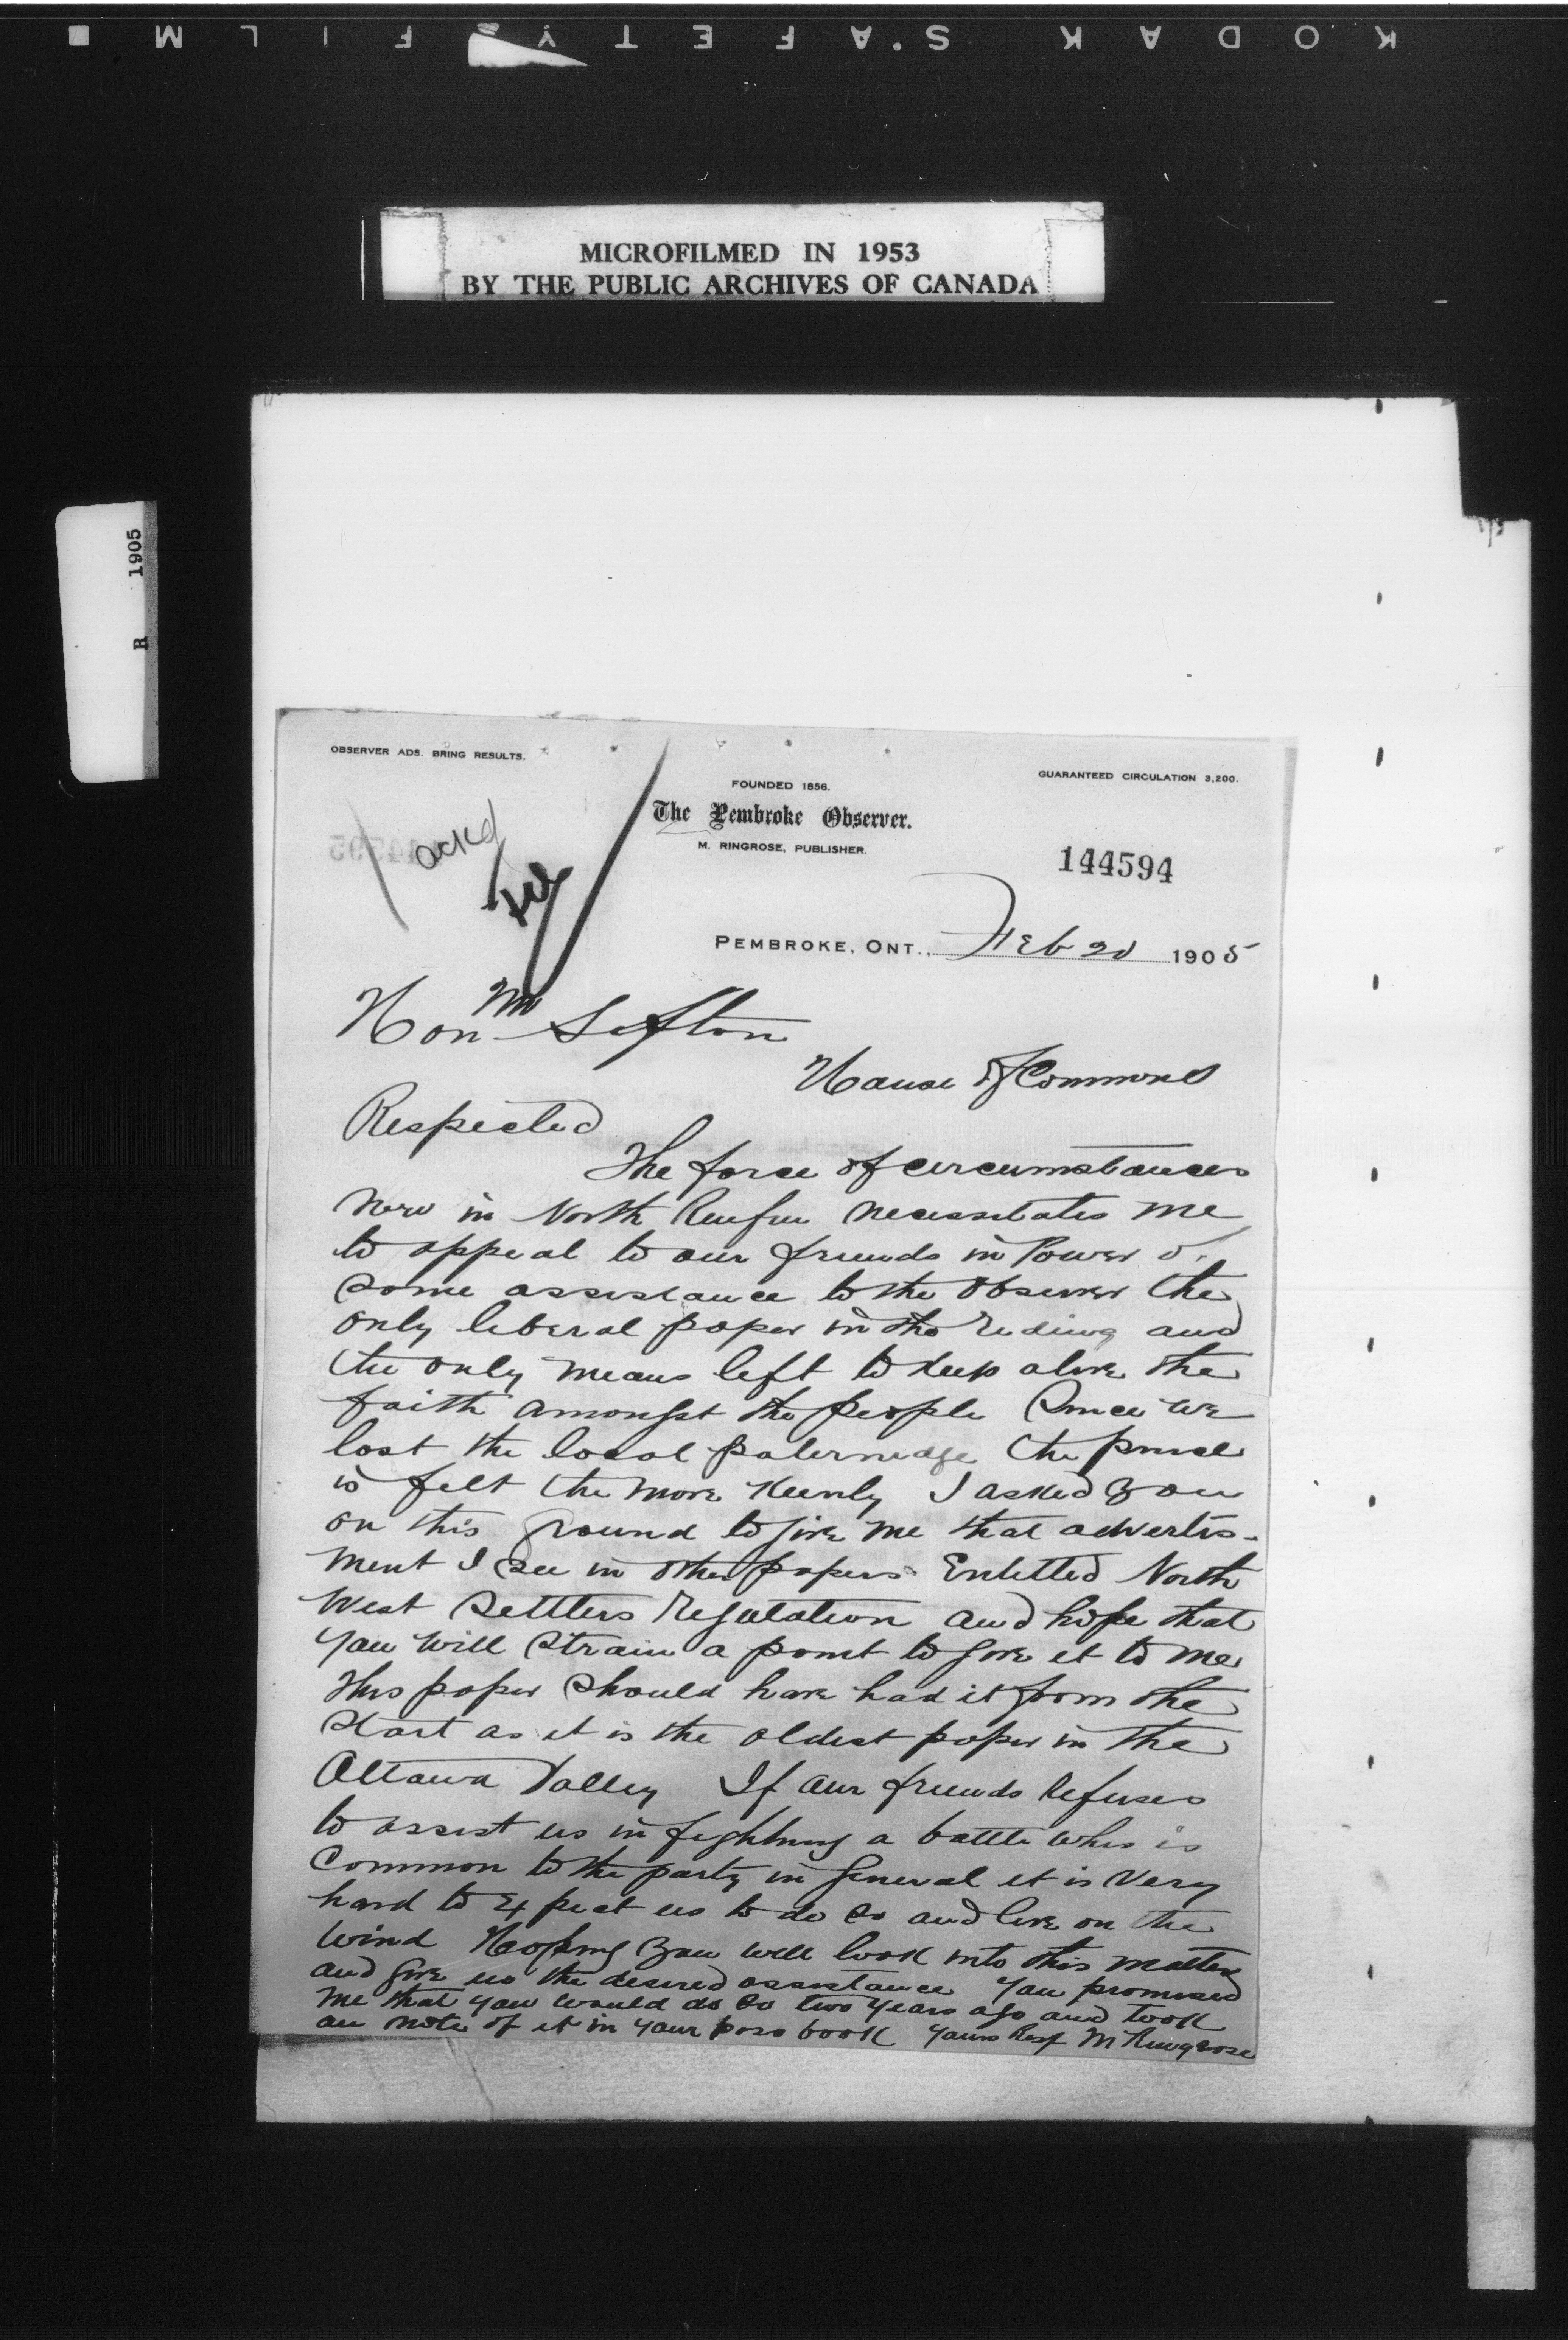 KODAK S.'AFETY FILM
MICROFILMED IN 1953
BY THE PUBLIC ARCHIVES OF CANADA
R 1905
OBSERVER ADS. BRING RESULTS.
GUARANTEED CIRCULATION 3,200.
FOUNDED 1856.
The Pembroke Observer.
M. RINGROSE, PUBLISHER.
ackd
144594
PEMBROKE, ONT., Feb 20 1905
Hon Mr Sifton
House of Commons
Respected
The force of circumstances
now in North Renfrew necessitates me
to appeal to our friends in Power
some assistance to the Observer the
only liberal paper in the riding and
the only means left to keep alive the
faith amongst the people Since we
lost the local paternedge the
is felt the more keenly I asked you
on this ground to give me that advertis-
ment I see in other papers Entitled North
West Settlers Regulation and hope that
you will strain a point to give it to me
This paper should have had it from the
start as it is the oldest paper in the
Ottawa Valley If our friends refuses
to assist us in fighting a battle whis is
common to the party in general it is very
hard to expect us to do so and live on the
wind Hoping you will look into this matter
and give us the desired assistance you promised
me that you would do so two years ago and took
an note of it in your book yours Resp M Ringrose